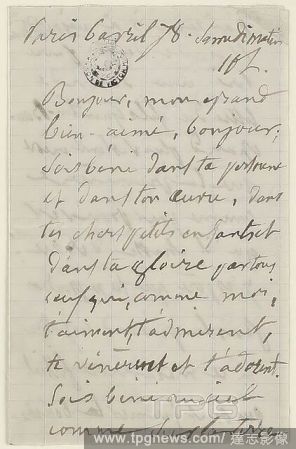 Paris 6 avril 78. Samedi matin
10 h.
Bonjour, mon grand
bien-aimé, bonjour,
sois béni dans ta personne
et dans ton œuvre, dans
tes chers petits enfants et
dans ta gloire par tous
ceux qui, comme moi,
t'aiment, t'admirent,
te vénèrent et t'adorent.
Sois béni au ciel
comme sur la terre
TPG
www.tpgnews.com / 達志影像